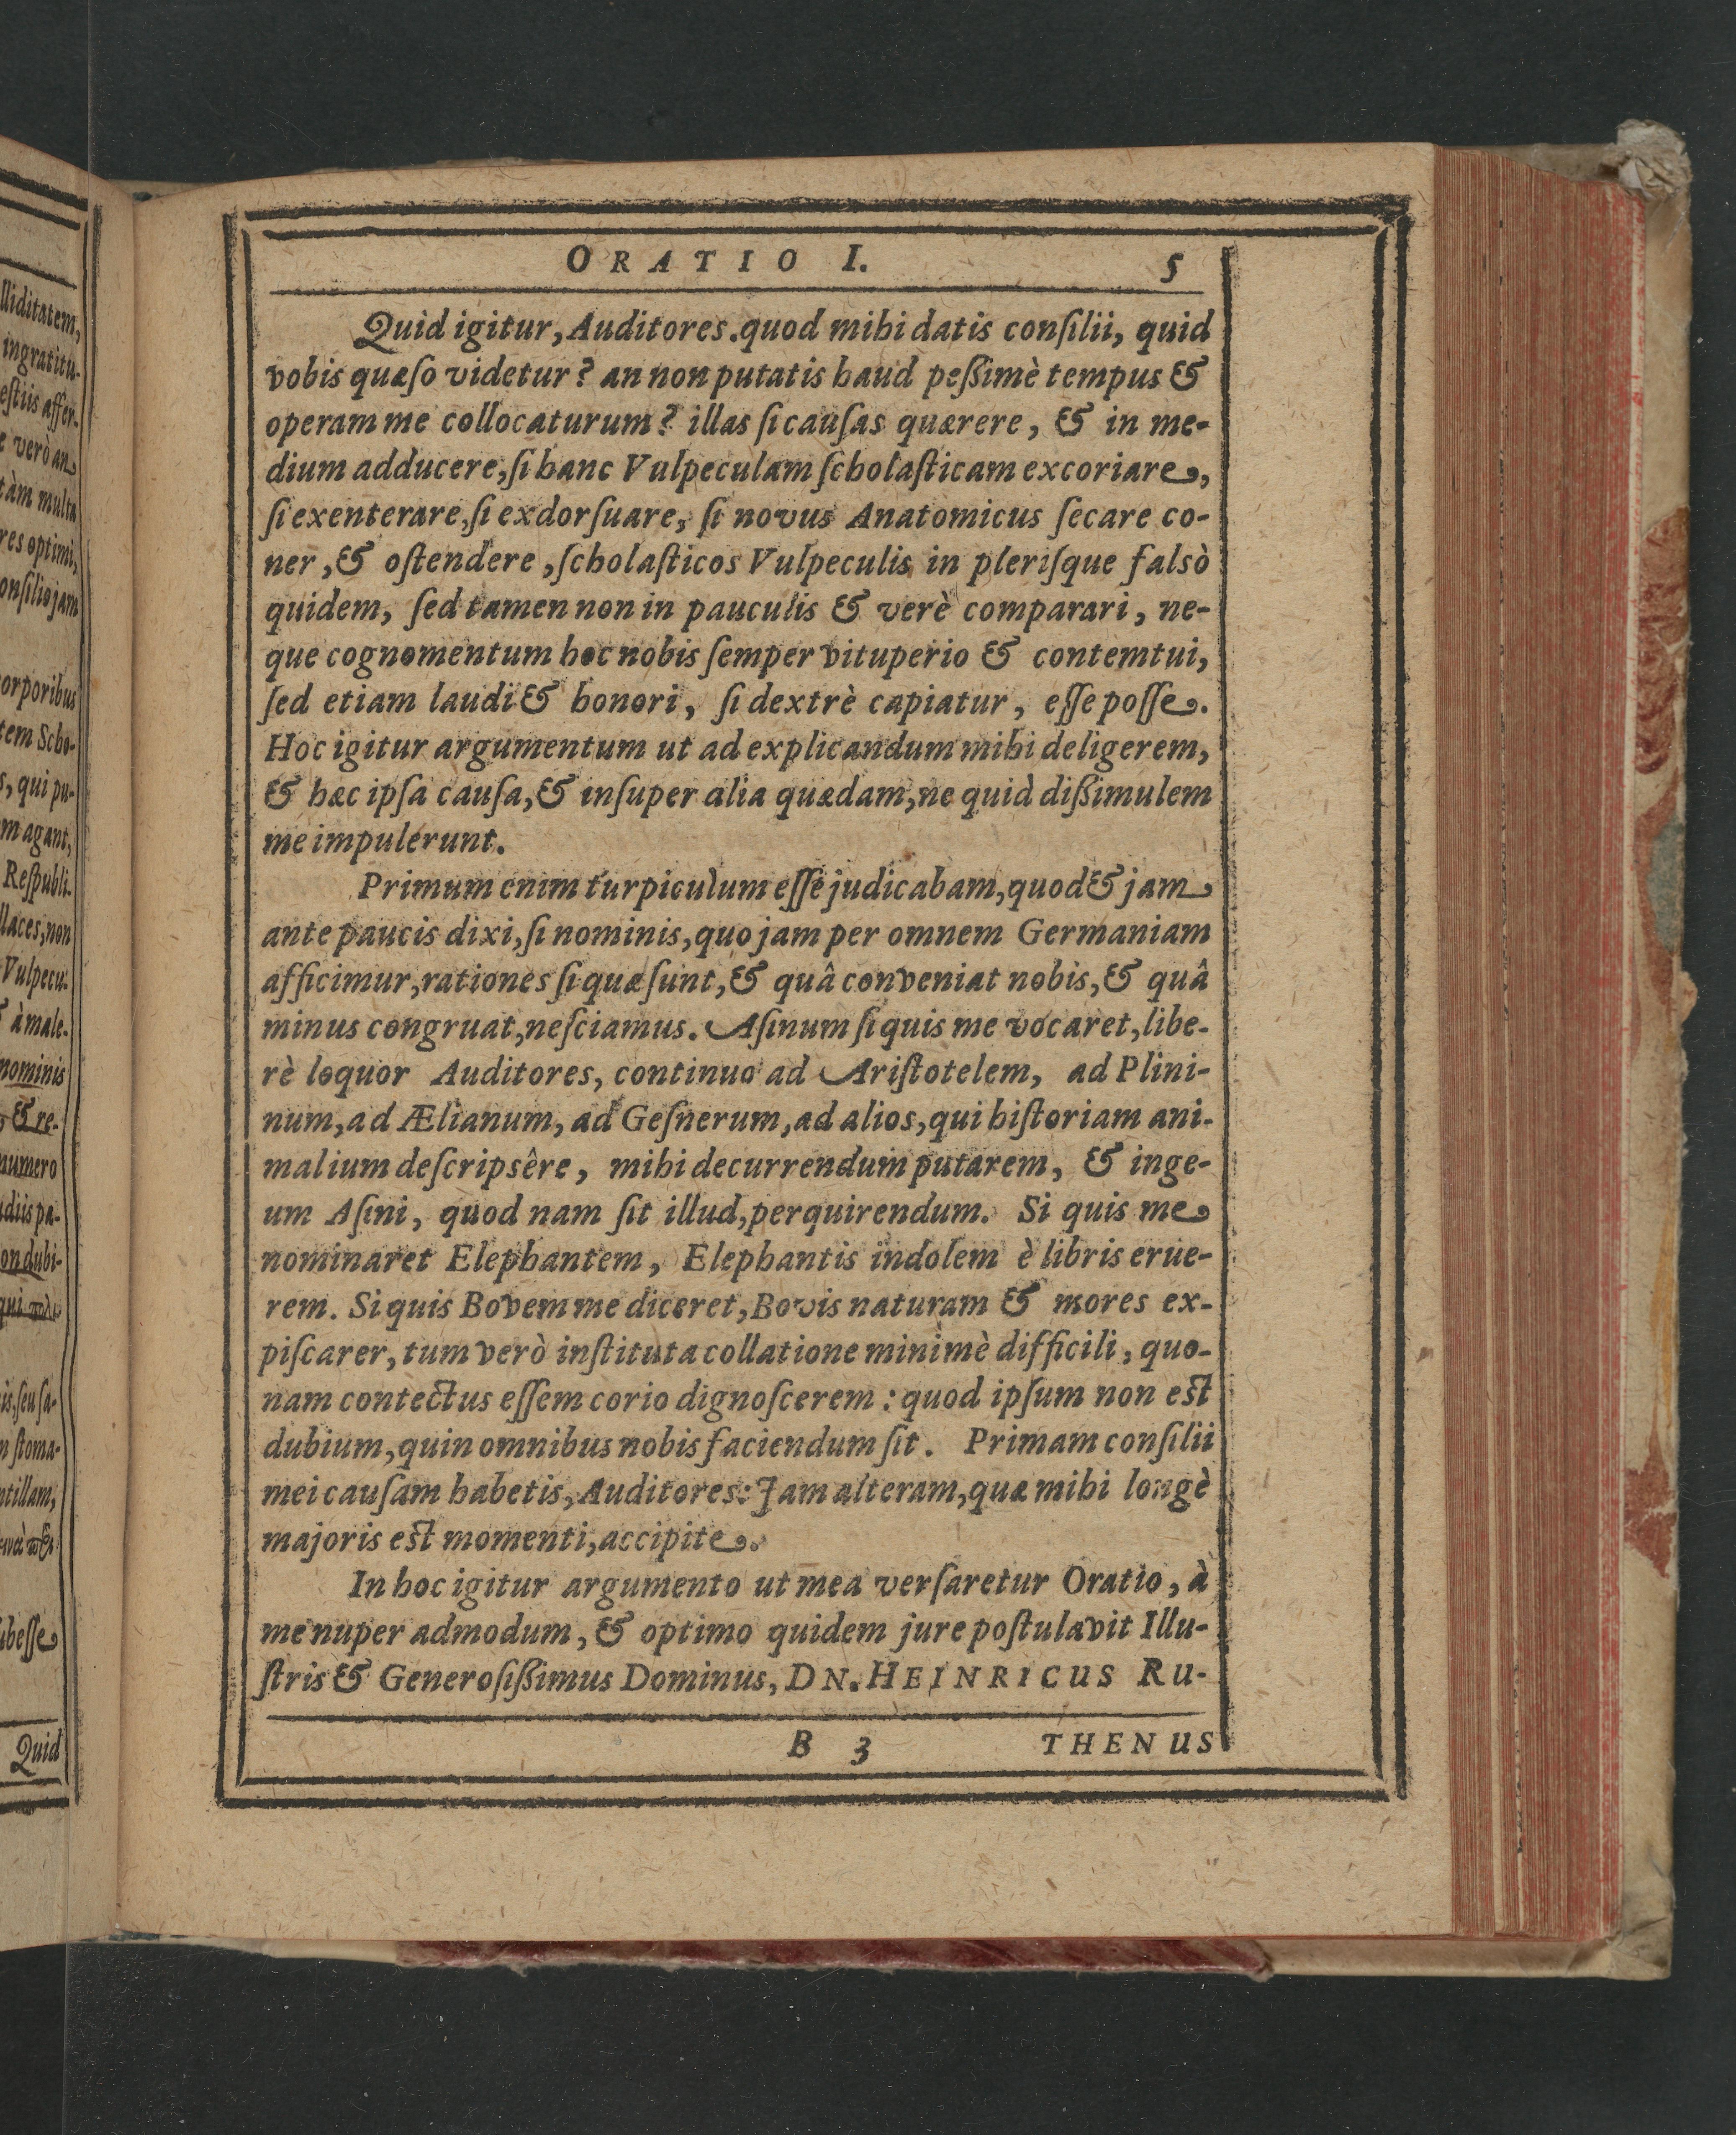 lliditatem,
ingratitu-
estiis affer-
verò an
tàm multa
res optimi,
onsilio jam
orporibus
tem Scho-
s, qui pu-
m agant,
Respubli-
llaces, non
Vulpecu-
à male-
nominis
& re-
numero
udiis pa-
on dubi-
qui
is, seu sa-
n stoma-
ntillam,
ubesse
Quid
ORATIO I. 5
Quid igitur, Auditores. quod mihi datis consilii, quid
vobis quæso videtur? an non putatis haud pessimè tempus &
operam me collocaturum? illas si causas quærere, & in me-
dium adducere, si hanc Vulpeculam scholasticam excoriare,
si exenterare, si exdorsuare, si novus Anatomicus secare co-
ner, & ostendere, scholasticos Vulpeculis in plerisque falsò
quidem, sed tamen non in pauculis & verè comparari, ne-
que cognomentum hoc nobis semper vituperio & contemtui,
sed etiam laudi & honori, si dextrè capiatur, esse posse.
Hoc igitur argumentum ut ad explicandum mihi deligerem,
& hæc ipsa causa, & insuper alia quædam, ne quid dissimulem
me impulerunt.
Primum enim turpiculum esse judicabam, quod & jam
ante paucis dixi, si nominis, quo jam per omnem Germaniam
afficimur, rationes si quæ sunt, & quâ conveniat nobis, & quâ
minus congruat, nesciamus. Asinum si quis me vocaret, libe-
rè loquor Auditores, continuo ad Aristotelem, ad Plini-
num, ad Ælianum, ad Gesnerum, ad alios, qui historiam ani-
malium descripsêre, mihi decurrendum putarem, & inge-
um Asini, quod nam sit illud, perquirendum. Si quis me
nominaret Elephantem, Elephantis indolem è libris erue-
rem. Si quis Bovem me diceret, Bovis naturam & mores ex-
piscarer, tum verò instituta collatione minimè difficili, quo-
nam contectus essem corio dignoscerem: quod ipsum non est
dubium, quin omnibus nobis faciendum sit. Primam consilii
mei causam habetis, Auditores: Jam alteram, quæ mihi longè
majoris est momenti, accipite.
In hoc igitur argumento ut mea versaretur Oratio, à
me nuper admodum, & optimo quidem jure postulavit Illu-
stris & Generosissimus Dominus, DN. HEINRICUS RU-
B 3 THENUS